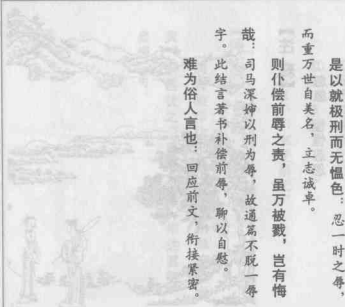 是以就极刑而无愠色：忍一时之辱，
而重万世自美名，立志诚卓。
则仆偿前辱之责，虽万被戮，岂有悔
哉：司马深婞以刑为辱，故通篇不脱一辱
字。此结言著书补偿前辱，聊以自慰。
难为俗人言也：回应前文，衔接紧密。